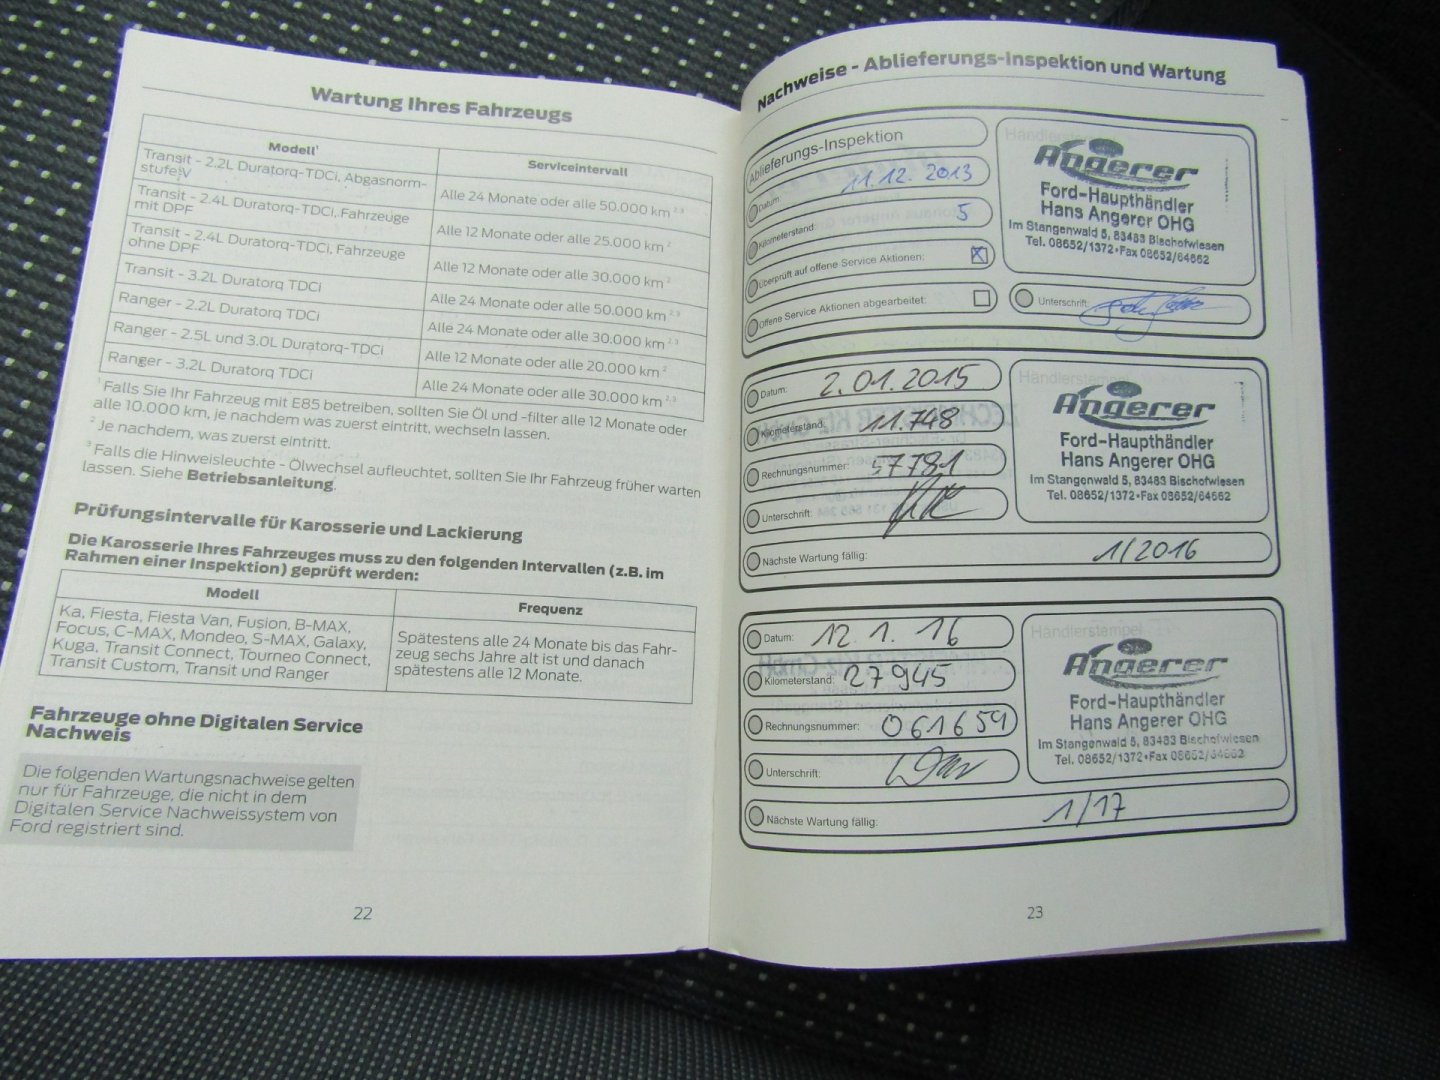 Wartung Ihres Fahrzeugs
Modell¹ Serviceintervall
Transit - 2.2L Duratorq-TDCi, Abgasnorm-
stufe V Alle 24 Monate oder alle 50.000 km ²,³
Transit - 2.4L Duratorq-TDCi, Fahrzeuge
mit DPF Alle 12 Monate oder alle 25.000 km ²
Transit - 2.4L Duratorq-TDCi, Fahrzeuge
ohne DPF Alle 12 Monate oder alle 30.000 km ²
Transit - 3.2L Duratorq TDCi Alle 24 Monate oder alle 50.000 km ²,³
Ranger - 2.2L Duratorq TDCi Alle 24 Monate oder alle 30.000 km ²,³
Ranger - 2.5L und 3.0L Duratorq-TDCi Alle 12 Monate oder alle 20.000 km ²
Ranger - 3.2L Duratorq TDCi Alle 24 Monate oder alle 30.000 km ²,³
¹ Falls Sie Ihr Fahrzeug mit E85 betreiben, sollten Sie Öl und -filter alle 12 Monate oder
alle 10.000 km, je nachdem was zuerst eintritt, wechseln lassen.
² Je nachdem, was zuerst eintritt.
³ Falls die Hinweisleuchte - Ölwechsel aufleuchtet, sollten Sie Ihr Fahrzeug früher warten
lassen. Siehe Betriebsanleitung.
Prüfungsintervalle für Karosserie und Lackierung
Die Karosserie Ihres Fahrzeuges muss zu den folgenden Intervallen (z.B. im
Rahmen einer Inspektion) geprüft werden:
Modell Frequenz
Ka, Fiesta, Fiesta Van, Fusion, B-MAX,
Focus, C-MAX, Mondeo, S-MAX, Galaxy,
Kuga, Transit Connect, Tourneo Connect,
Transit Custom, Transit und Ranger
Spätestens alle 24 Monate bis das Fahr-
zeug sechs Jahre alt ist und danach
spätestens alle 12 Monate.
Fahrzeuge ohne Digitalen Service
Nachweis
Die folgenden Wartungsnachweise gelten
nur für Fahrzeuge, die nicht in dem
Digitalen Service Nachweissystem von
Ford registriert sind.
22
Nachweise - Ablieferungs-Inspektion und Wartung
Ablieferungs-Inspektion
Datum: 11.12. 2013
Kilometerstand: 5
Überprüft auf offene Service Aktionen: X
Offene Service Aktionen abgearbeitet:
Händlerstempel
Angerer
Ford-Haupthändler
Hans Angerer OHG
Im Stangenwald 5, 83483 Bischofwiesen
Tel. 08652/1372•Fax 08652/64662
Unterschrift:
Datum: 2.01.2015
Kilometerstand: 11.748
Rechnungsnummer: 57781
Unterschrift:
Nächste Wartung fällig: 1/2016
Händlerstempel
Angerer
Ford-Haupthändler
Hans Angerer OHG
Im Stangenwald 5, 83483 Bischofwiesen
Tel. 08652/1372•Fax 08652/64662
Datum: 12.1.16
Kilometerstand: 27945
Rechnungsnummer: 061659
Unterschrift:
Nächste Wartung fällig: 1/17
Händlerstempel
Angerer
Ford-Haupthändler
Hans Angerer OHG
Im Stangenwald 5, 83483 Bischofwiesen
Tel. 08652/1372•Fax 08652/64662
23